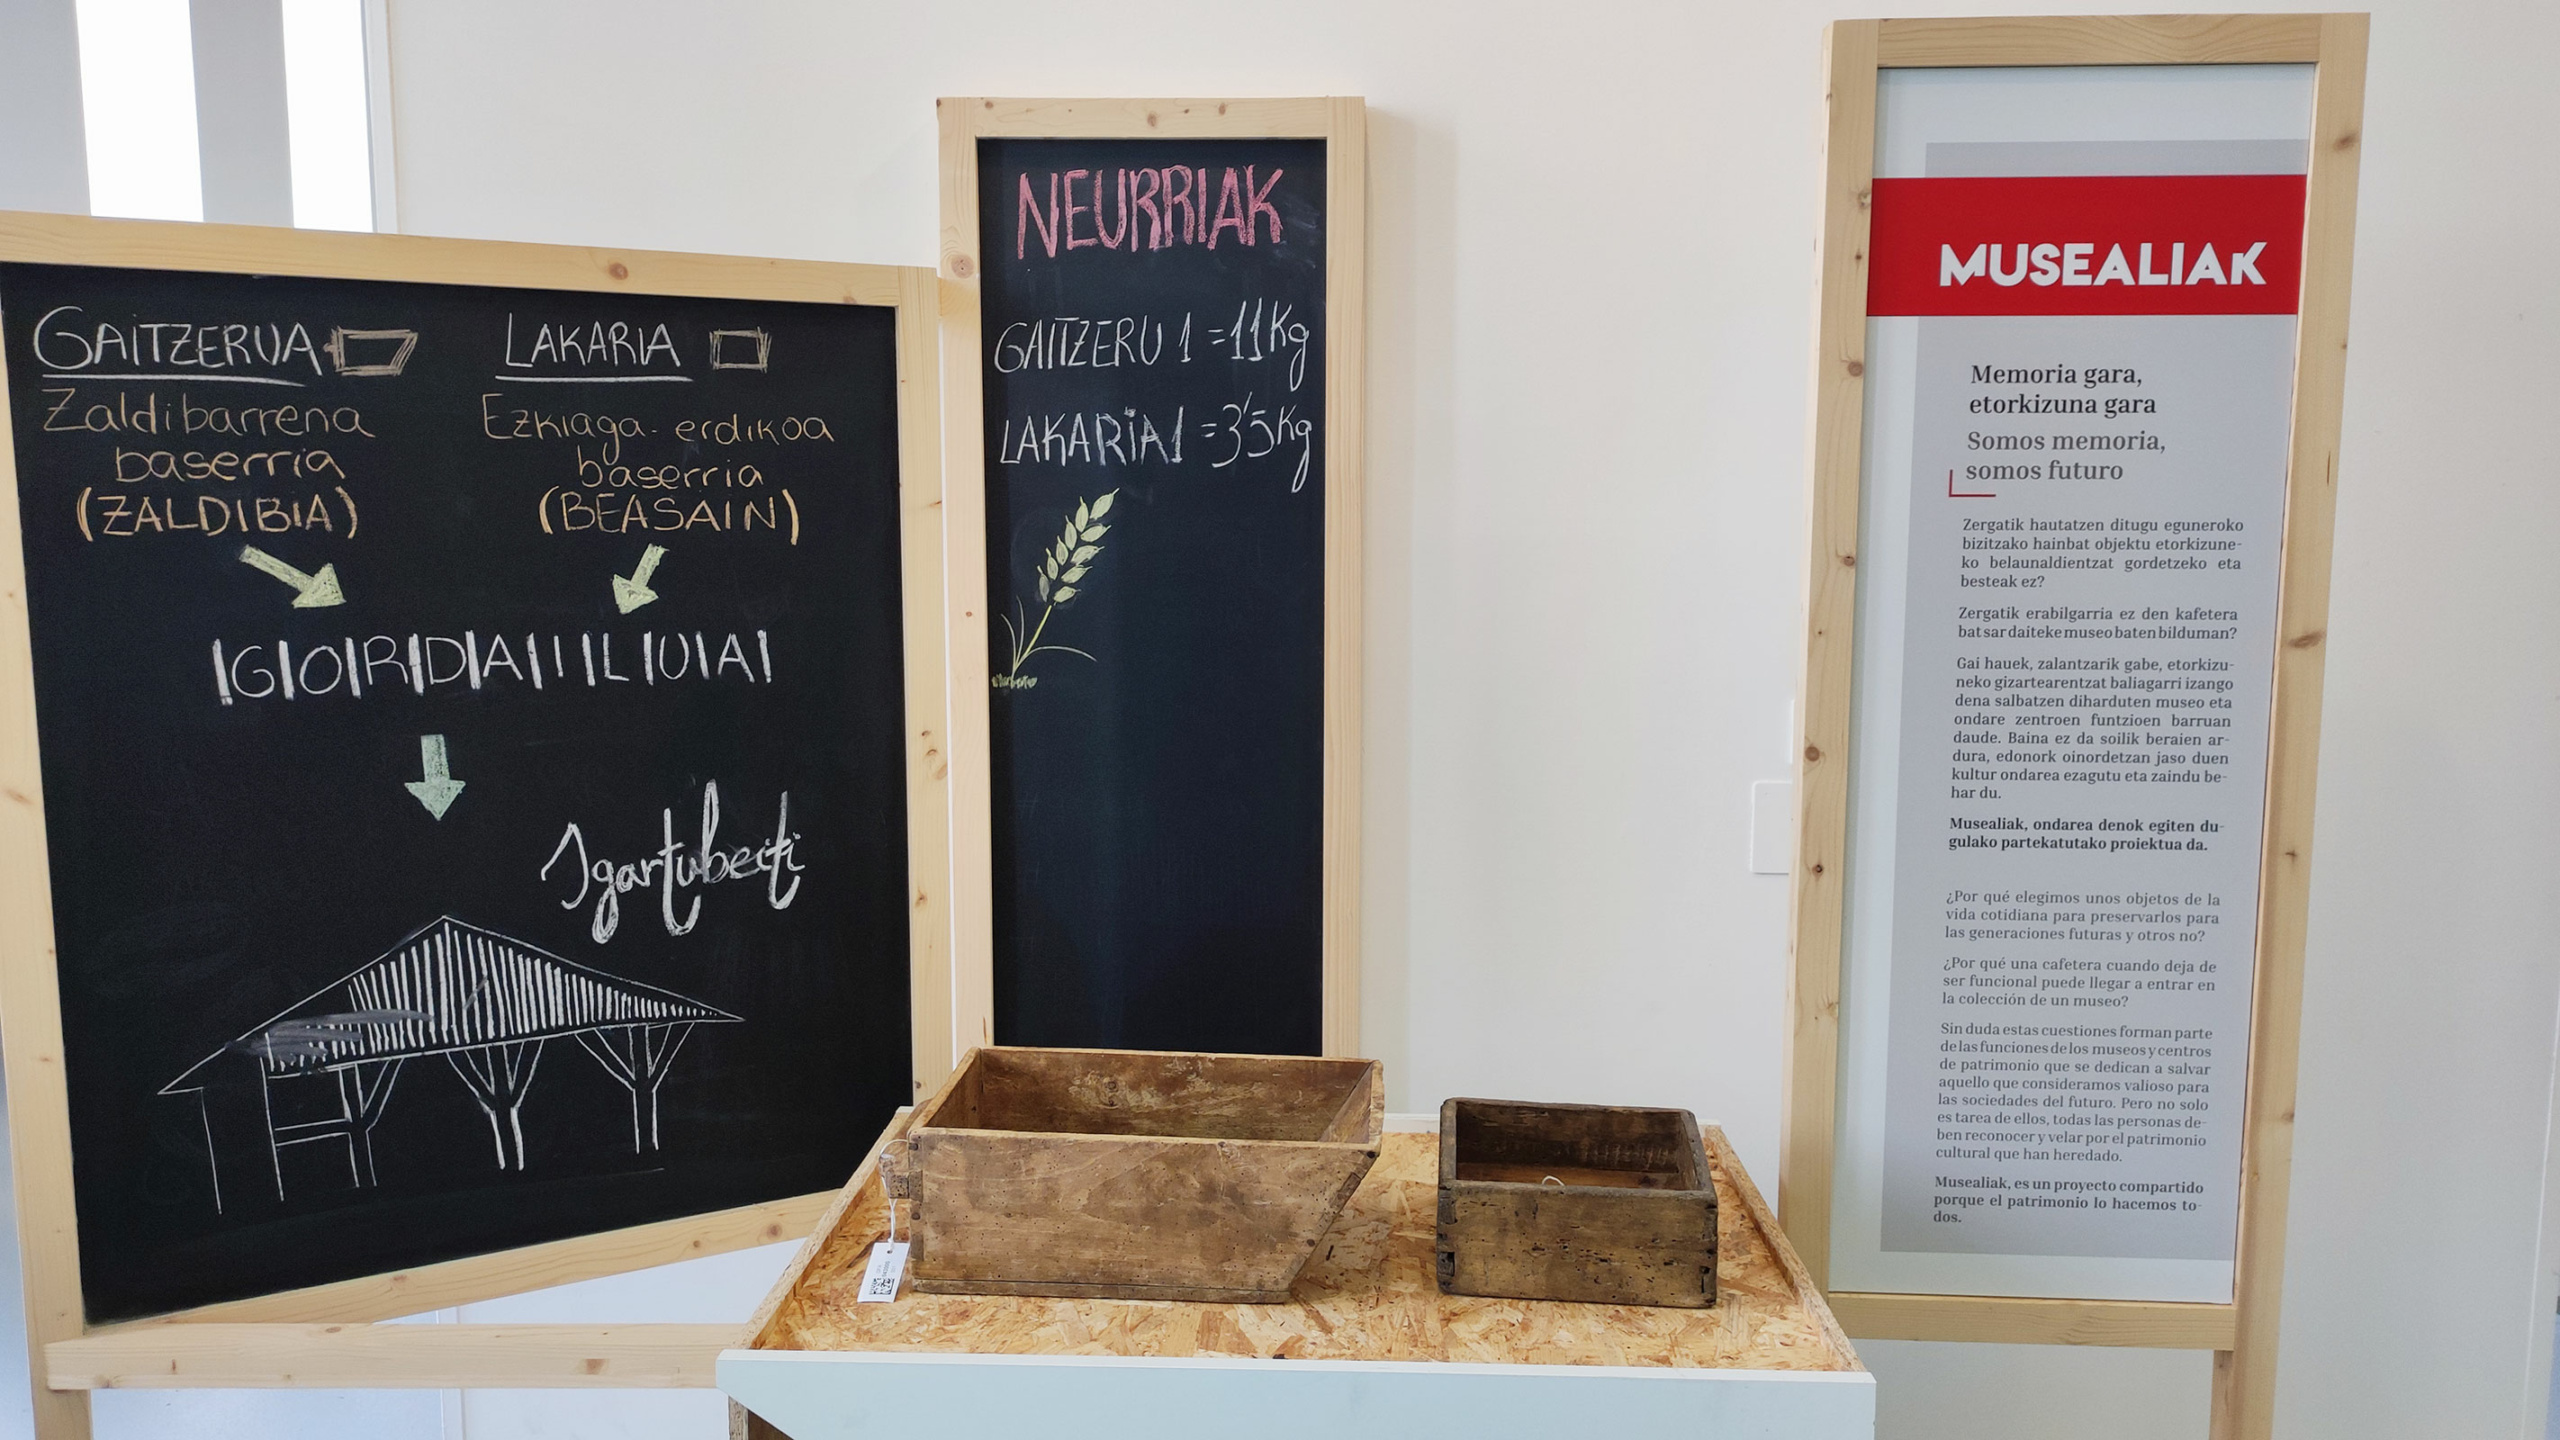 GAITZERUA
Zaldibarrena
baserria
(ZALDIBIA)
LAKARIA
Ezkiaga-erdikoa
baserria
(BEASAIN)
GORDAILUA
Igartubeiti
NEURRIAK
GAITZERU 1 = 11 Kg
LAKARIA 1 = 3'5 Kg
MUSEALIAK
Memoria gara,
etorkizuna gara
Somos memoria,
somos futuro
Zergatik hautatzen ditugu eguneroko
bizitzako hainbat objektu etorkizune-
ko belaunaldientzat gordetzeko eta
besteak ez?
Zergatik erabilgarria ez den kafetera
bat sar daiteke museo baten bilduman?
Gai hauek, zalantzarik gabe, etorkizu-
neko gizartearentzat baliagarri izango
dena salbatzen diharduten museo eta
ondare zentroen funtzioen barruan
daude. Baina ez da soilik beraien ar-
dura, edonork oinordetzan jaso duen
kultur ondarea ezagutu eta zaindu be-
har du.
Musealiak, ondarea denok egiten du-
gulako partekatutako proiektua da.
¿Por qué elegimos unos objetos de la
vida cotidiana para preservarlos para
las generaciones futuras y otros no?
¿Por qué una cafetera cuando deja de
ser funcional puede llegar a entrar en
la colección de un museo?
Sin duda estas cuestiones forman parte
de las funciones de los museos y centros
de patrimonio que se dedican a salvar
aquello que consideramos valioso para
las sociedades del futuro. Pero no solo
es tarea de ellos, todas las personas de-
ben reconocer y velar por el patrimonio
cultural que han heredado.
Musealiak, es un proyecto compartido
porque el patrimonio lo hacemos to-
dos.